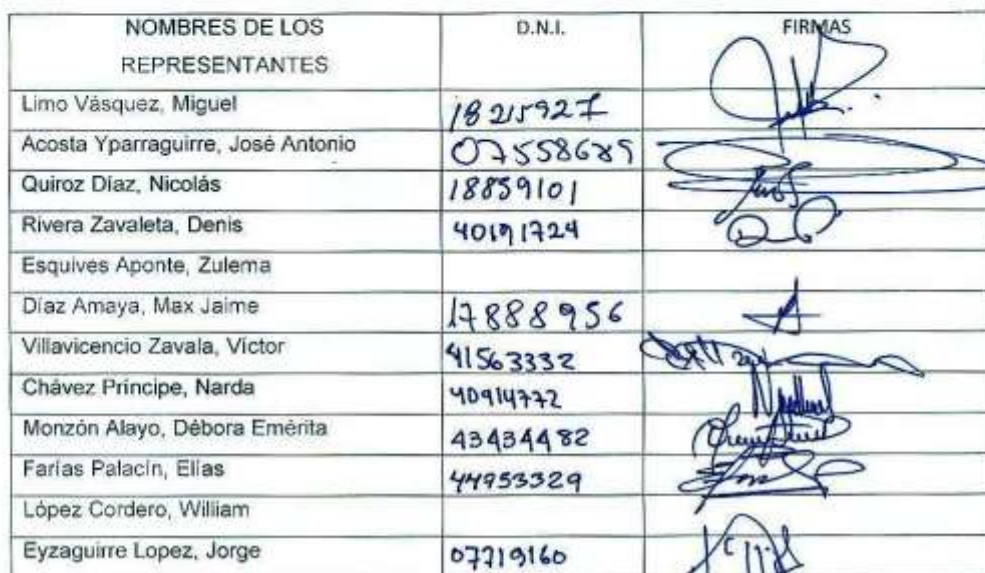 NOMBRES DE LOS REPRESENTANTES D.N.I. FIRMAS
Limo Vásquez, Miguel 18215927
Acosta Yparraguirre, José Antonio 07558689
Quiroz Díaz, Nicolás 18859101
Rivera Zavaleta, Denis 40191724
Esquives Aponte, Zulema
Díaz Amaya, Max Jaime 17888956
Villavicencio Zavala, Víctor 41563332
Chávez Príncipe, Narda 40914772
Monzón Alayo, Débora Emérita 43434482
Farías Palacín, Elías 44953329
López Cordero, William
Eyzaguirre Lopez, Jorge 07719160